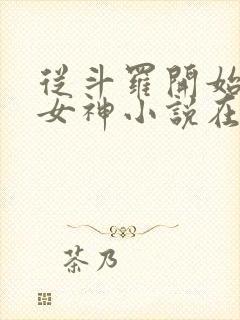 從斗羅開始
女神小説在
茶乃